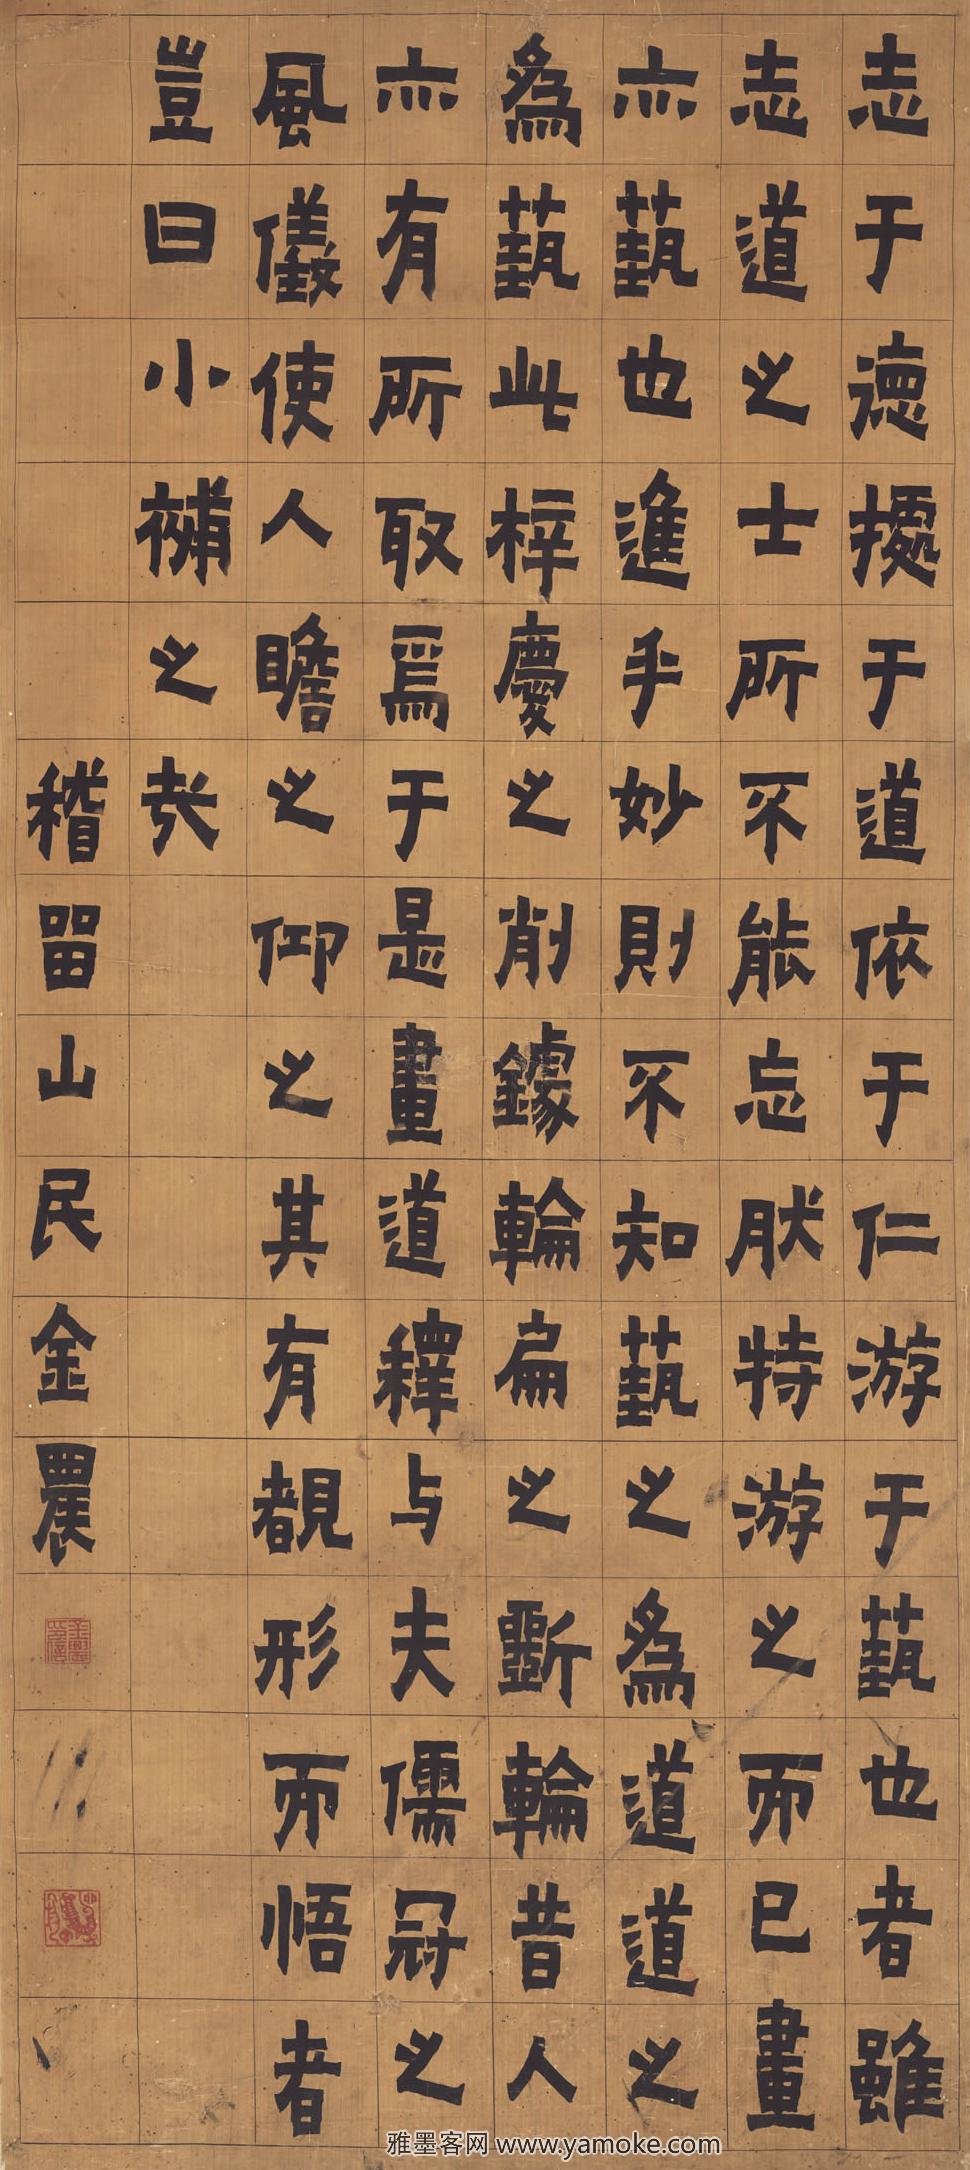 志于德據于道依于仁游于藝也者雖
志道之士所不能忘肰特游之而已畫
亦藝也進乎妙則不知藝之為道道之
為藝此梓慶之削鐻輪扁之斲輪昔人
亦有所取焉于是畫道釋与夫儒冠之
風儀使人瞻之仰之其有覩形而悟者
豈曰小補之哉
稽留山民金農
金農印信
雅墨客网 www.yamoke.com